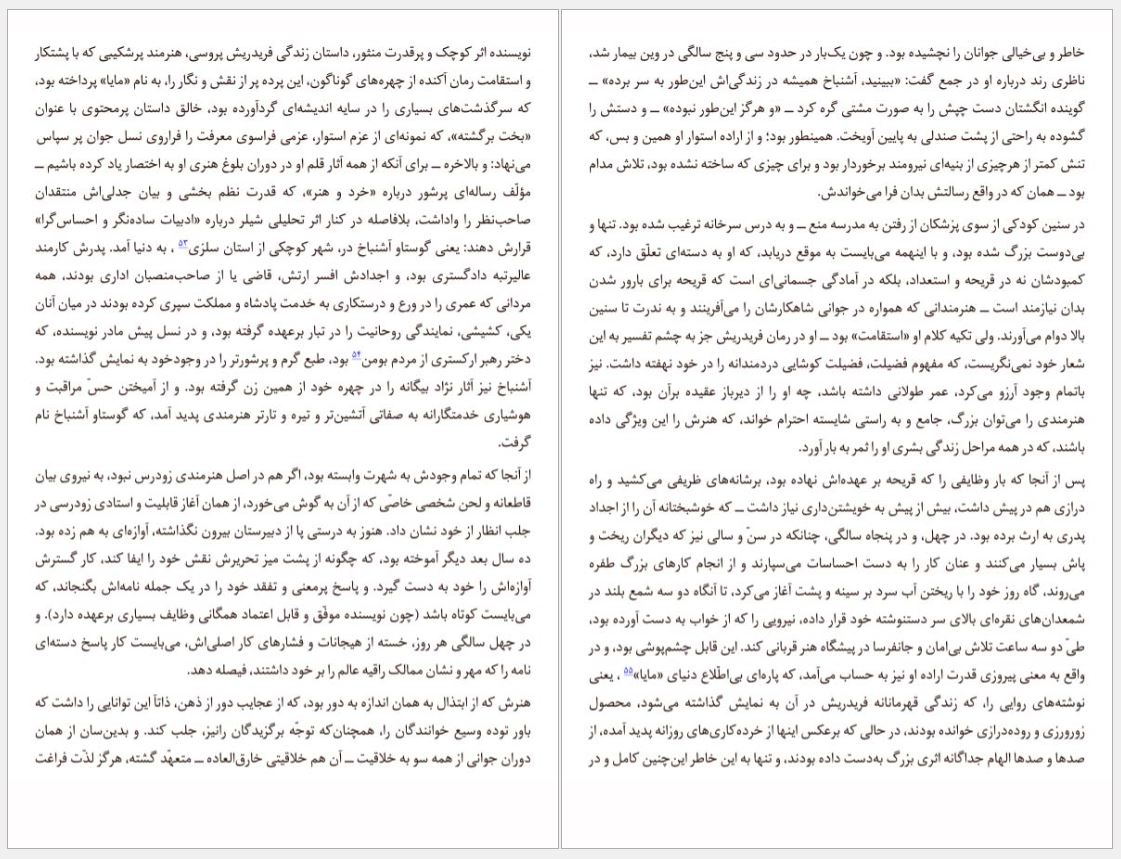 نویسنده اثر کوچک و پرقدرت منثور، داستان زندگی فریدریش پروسی، هنرمند پرشکیبی که با پشتکار
و استقامت رمان آکنده از چهره‌های گوناگون، این پرده پر از نقش و نگار را، به نام «مایا» پرداخته بود،
که سرگذشت‌های بسیاری را در سایه اندیشه‌ای گردآورده بود، خالق داستان پرمحتوی با عنوان
«بخت برگشته»، که نمونه‌ای از عزم استوار، عزمی فراسوی معرفت را فراروی نسل جوان پر سپاس
می‌نهاد: و بالاخره ــ برای آنکه از همه آثار قلم او در دوران بلوغ هنری او به اختصار یاد کرده باشیم ــ
مؤلّف رساله‌ای پرشور درباره «خرد و هنر»، که قدرت نظم بخشی و بیان جدلی‌اش منتقدان
صاحب‌نظر را واداشت، بلافاصله در کنار اثر تحلیلی شیلر درباره «ادبیات ساده‌نگر و احساس‌گرا»
قرارش دهند: یعنی گوستاو آشنباخ در، شهر کوچکی از استان سلزی۵۳ ، به دنیا آمد. پدرش کارمند
عالیرتبه دادگستری بود، و اجدادش افسر ارتش، قاضی یا از صاحب‌منصبان اداری بودند، همه
مردانی که عمری را در ورع و درستکاری به خدمت پادشاه و مملکت سپری کرده بودند در میان آنان
یکی، کشیشی، نمایندگی روحانیت را در تبار برعهده گرفته بود، و در نسل پیش مادر نویسنده، که
دختر رهبر ارکستری از مردم بومن۵۴ بود، طبع گرم و پرشورتر را در وجودخود به نمایش گذاشته بود.
آشنباخ نیز آثار نژاد بیگانه را در چهره خود از همین زن گرفته بود. و از آمیختن حسّ مراقبت و
هوشیاری خدمتگارانه به صفاتی آتشین‌تر و تیره و تارتر هنرمندی پدید آمد، که گوستاو آشنباخ نام
گرفت.
از آنجا که تمام وجودش به شهرت وابسته بود، اگر هم در اصل هنرمندی زودرس نبود، به نیروی بیان
قاطعانه و لحن شخصی خاصّی که از آن به گوش می‌خورد، از همان آغاز قابلیت و استادی زودرسی در
جلب انظار از خود نشان داد. هنوز به درستی پا از دبیرستان بیرون نگذاشته، آوازه‌ای به هم زده بود.
ده سال بعد دیگر آموخته بود، که چگونه از پشت میز تحریرش نقش خود را ایفا کند، کار گسترش
آوازه‌اش را خود به دست گیرد. و پاسخ پرمعنی و تفقد خود را در یک جمله نامه‌اش بگنجاند، که
می‌بایست کوتاه باشد (چون نویسنده موفّق و قابل اعتماد همگانی وظایف بسیاری برعهده دارد). و
در چهل سالگی هر روز، خسته از هیجانات و فشارهای کار اصلی‌اش، می‌بایست کار پاسخ دسته‌ای
نامه را که مهر و نشان ممالک راقیه عالم را بر خود داشتند، فیصله دهد.
هنرش که از ابتذال به همان اندازه به دور بود، که از عجایب دور از ذهن، ذاتاً این توانایی را داشت که
باور توده وسیع خوانندگان را، همچنان‌که توجّه برگزیدگان رانیز، جلب کند. و بدین‌سان از همان
دوران جوانی از همه سو به خلاقیت ــ آن هم خلاقیتی خارق‌العاده ــ متعهّد گشته، هرگز لذّت فراغت
خاطر و بی‌خیالی جوانان را نچشیده بود. و چون یک‌بار در حدود سی و پنج سالگی در وین بیمار شد،
ناظری رند درباره او در جمع گفت: «ببینید، آشنباخ همیشه در زندگی‌اش این‌طور به سر برده» ــ
گوینده انگشتان دست چپش را به صورت مشتی گره کرد ــ «و هرگز این‌طور نبوده» ــ و دستش را
گشوده به راحتی از پشت صندلی به پایین آویخت. همینطور بود؛ و از اراده استوار او همین و بس، که
تنش کمتر از هرچیزی از بنیه‌ای نیرومند برخوردار بود و برای چیزی که ساخته نشده بود، تلاش مدام
بود ــ همان که در واقع رسالتش بدان فرا می‌خواندش.
در سنین کودکی از سوی پزشکان از رفتن به مدرسه منع ــ و به درس سرخانه ترغیب شده بود. تنها و
بی‌دوست بزرگ شده بود، و با اینهمه می‌بایست به موقع دریابد، که او به دسته‌ای تعلّق دارد، که
کمبودشان نه در قریحه و استعداد، بلکه در آمادگی جسمانی‌ای است که قریحه برای بارور شدن
بدان نیازمند است ــ هنرمندانی که همواره در جوانی شاهکارشان را می‌آفرینند و به ندرت تا سنین
بالا دوام می‌آورند. ولی تکیه کلام او «استقامت» بود ــ او در رمان فریدریش جز به چشم تفسیر به این
شعار خود نمی‌نگریست، که مفهوم فضیلت، فضیلت کوشایی دردمندانه را در خود نهفته داشت. نیز
باتمام وجود آرزو می‌کرد، عمر طولانی داشته باشد، چه او را از دیرباز عقیده برآن بود، که تنها
هنرمندی را می‌توان بزرگ، جامع و به راستی شایسته احترام خواند، که هنرش را این ویژگی داده
باشند، که در همه مراحل زندگی بشری او را ثمر به بار آورد.
پس از آنجا که بار وظایفی را که قریحه بر عهده‌اش نهاده بود، برشانه‌های ظریفی می‌کشید و راه
درازی هم در پیش داشت، بیش از پیش به خویشتن‌داری نیاز داشت ــ که خوشبختانه آن را از اجداد
پدری به ارث برده بود. در چهل، و در پنجاه سالگی، چنانکه در سنّ و سالی نیز که دیگران ریخت و
پاش بسیار می‌کنند و عنان کار را به دست احساسات می‌سپارند و از انجام کارهای بزرگ طفره
می‌روند، گاه روز خود را با ریختن آب سرد بر سینه و پشت آغاز می‌کرد، تا آنگاه دو سه شمع بلند در
شمعدان‌های نقره‌ای بالای سر دستنوشته خود قرار داده، نیرویی را که از خواب به دست آورده بود،
طیّ دو سه ساعت تلاش بی‌امان و جانفرسا در پیشگاه هنر قربانی کند. این قابل چشم‌پوشی بود، و در
واقع به معنی پیروزی قدرت اراده او نیز به حساب می‌آمد، که پاره‌ای بی‌اطّلاع دنیای «مایا»۵۵ ، یعنی
نوشته‌های روایی را، که زندگی قهرمانانه فریدریش در آن به نمایش گذاشته می‌شود، محصول
زورورزی و روده‌درازی خوانده بودند، در حالی که برعکس اینها از خرده‌کاری‌های روزانه پدید آمده، از
صدها و صدها الهام جداگانه اثری بزرگ به‌دست داده بودند، و تنها به این خاطر این‌چنین کامل و در